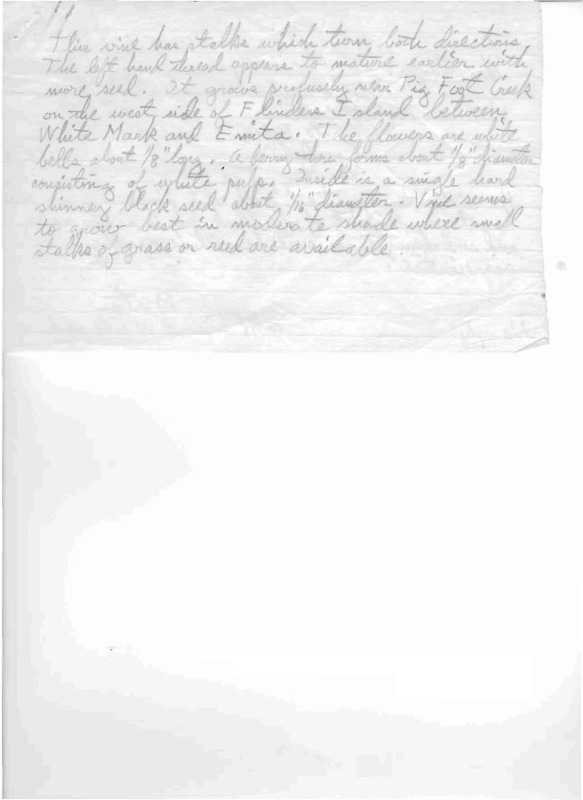 This vine has stalks which turn both directions.
The left hand thread appears to mature earlier with
more seed. It grows profusely near Pig Foot Creek
on the west side of Flinders Island between
White Mark and Emita. The flowers are white
bells about 1/8" long. A berry then forms about 1/8" diameter
consisting of white pulp. Inside is a single hard
shinney black seed about 1/16" diameter. Vine seems
to grow best in moderate shade where small
stalks of grass or reed are available.